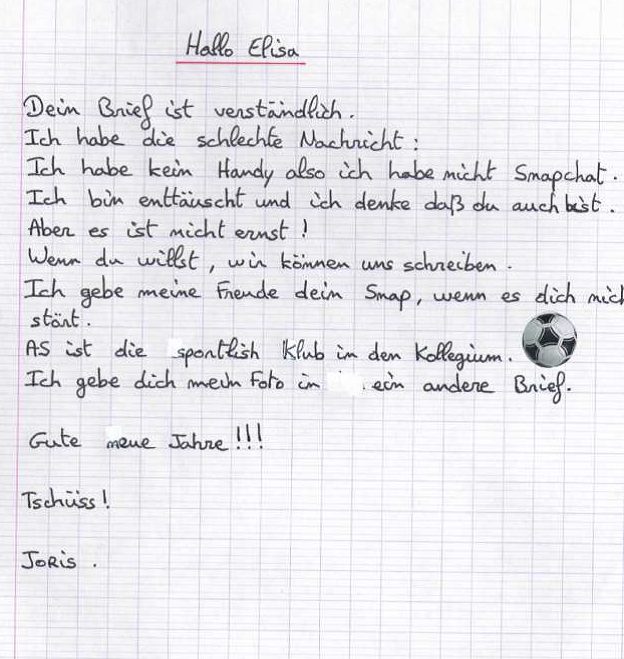 Hallo Elisa
Dein Brief ist verständlich.
Ich habe die schlechte Nachricht :
Ich habe kein Handy also ich habe nicht Snapchat.
Ich bin enttäuscht und ich denke daß du auch bist.
Aber es ist nicht ernst !
Wenn du willst, wir können uns schreiben.
Ich gebe meine Freude dein Snap, wenn es dich nich
stört.
AS ist die sportlish Klub in den Kollegium.
Ich gebe dich mein Foto in ein andere Brief.
Gute neue Jahre !!!
Tschüss !
JORIS .